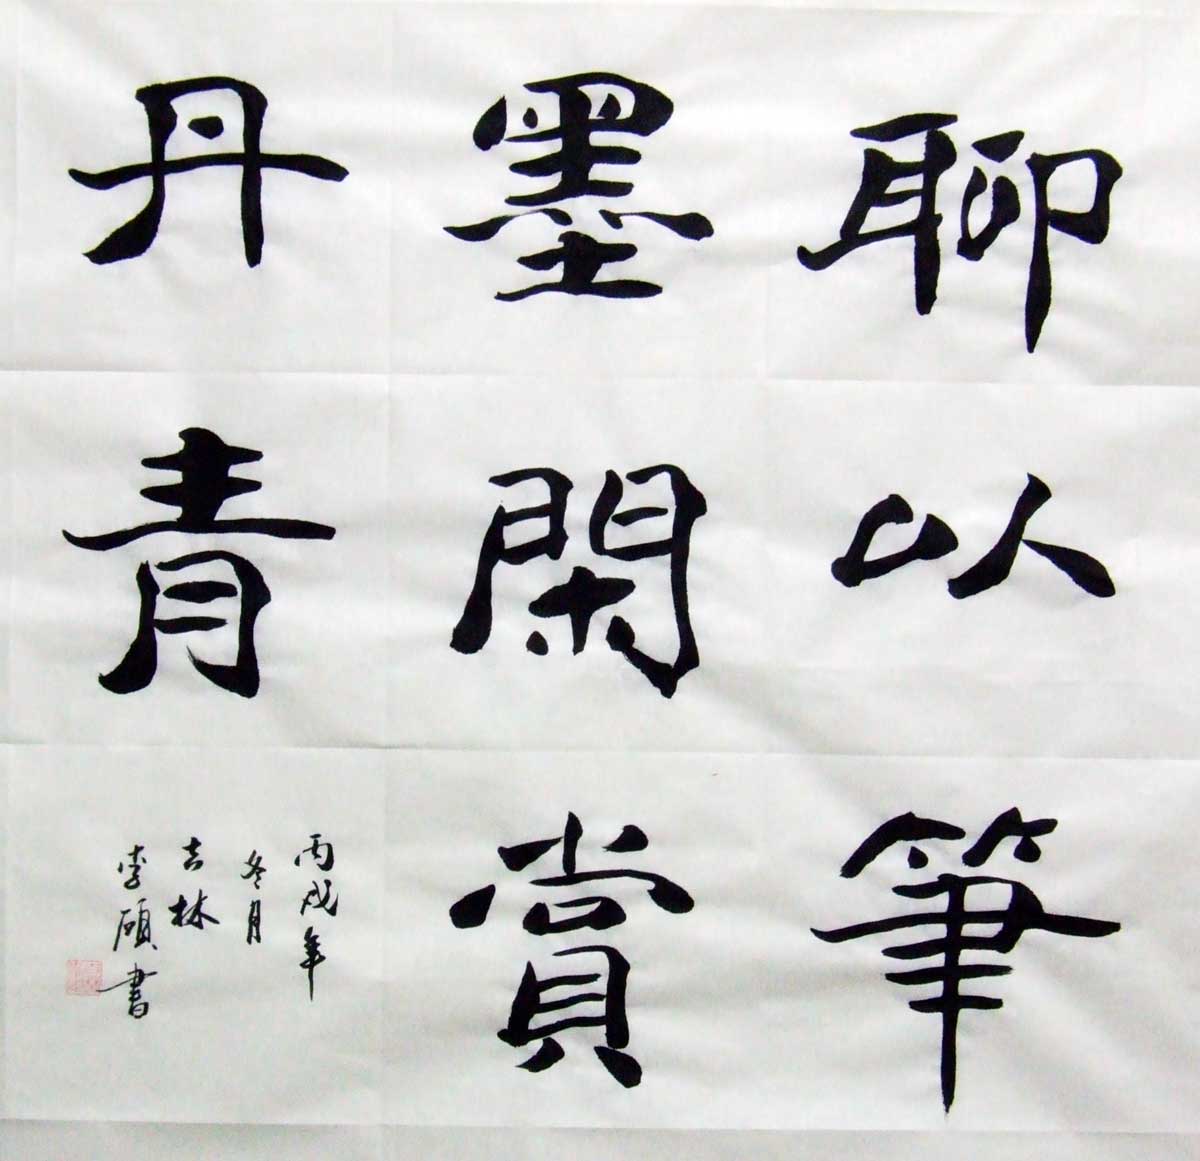 聊以筆
墨閑賞
丹青
丙戌年
冬月
吉林
李碩書